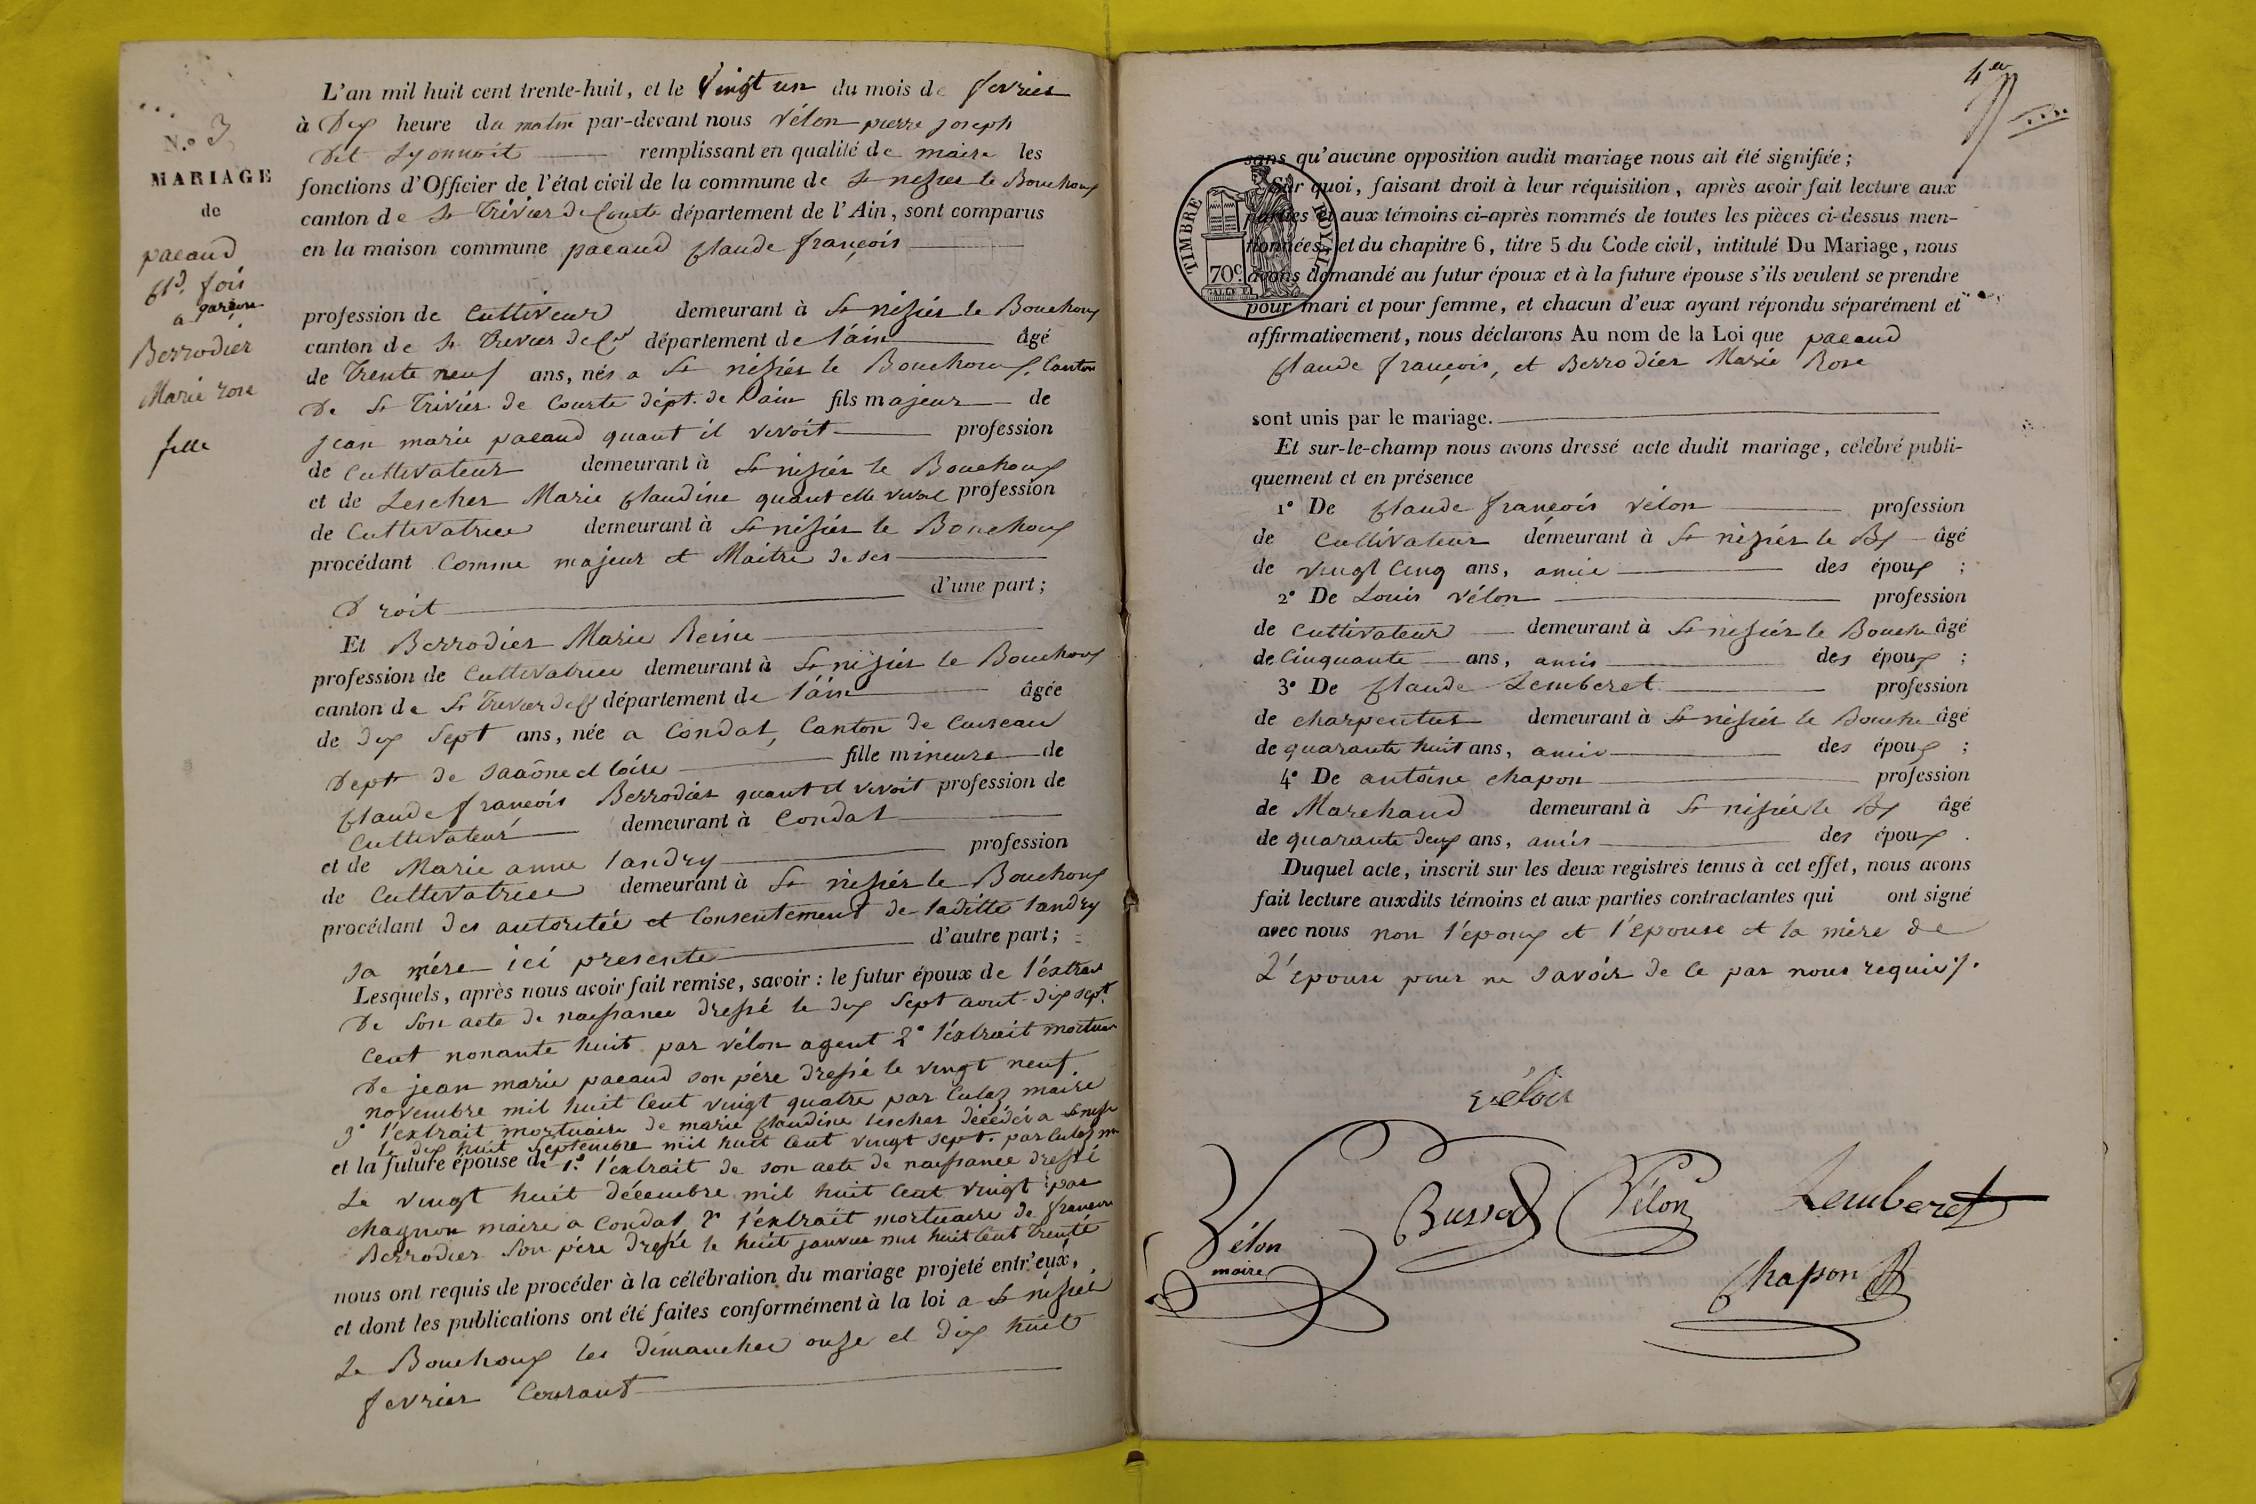 N.o 3
MARIAGE
de
pacaud
Cld. fois
garçon
a
Berrodier
Marie rose
fille
L'an mil huit cent trente-huit, et le Vingt un du mois de fevrier
à Dix heure du matin par-devant nous Vélon pierre joseph
Dit Lyonnoit remplissant en qualité de maire les
fonctions d'Officier de l'état civil de la commune de St nizier le Bouchoux
canton de St Trivier de Courte département de l'Ain, sont comparus
en la maison commune pacaud Claude françois
profession de Cultiveur demeurant à St nizier le Bouchoux
canton de St Trevier de Ct département de l'ain âgé
de Trente neuf ans, nés a St nizier le Bouchoux, Canton
De St Trivier de Courte dépt. de l'ain fils majeur de
jean marie pacaud quant il vivoit profession
de Cultivateur demeurant à St nizier le Bouchoux
et de Lescher Marie Claudine quant elle vivoit profession
de Cultivatrice demeurant à St nizier le Bouchoux
procédant Comme majeur et Maitre de ses
Droit d'une part;
Et Berrodier Marie Reine
profession de Cultivatrice demeurant à St nizier le Bouchoux
canton de St Trevier de Ct département de l'ain âgée
de dix Sept ans, née a Condat, Canton de Cuiseau
Dept de Saaône et loire fille mineure de
Claude françois Berrodier quant il vivoit profession de
Cultivateur demeurant à Condat
et de Marie anne landry profession
de Cultivatrice demeurant à St nizier le Bouchoux
procédant des autoritée et Consentement de laditte landry
sa mére ici presente d'autre part;
Lesquels, après nous avoir fait remise, savoir: le futur époux de l'éxtrait
De Son acte de naissance dressé le dix Sept aout dix sept
Cent nonante huit par Vélon agent 2° l'éxtrait mortuer
De jean marie pacaud son pére dressé le vingt neuf
novembre mil huit Cent vingt quatre par Culaz maire
3° l'extrait mortuaire de marie Claudine lescher décédé a St nizier
le dix huit Septembre mil huit Cent vingt sept. par Culaz m
et la future épouse de 1° l'éxtrait de son acte de naissance dressé
Le vingt huit décembre mil huit Cent vingt par
chagnon maire a Condat 2° l'éxtrait mortuaire de francois
Berrodier Son pére dressé le huit janvier mil huit Cent Trente
nous ont requis de procéder à la célébration du mariage projeté entr'eux,
et dont les publications ont été faites conformément à la loi a St nizier
Le Bouchoux les dimanches onze et dix huit
fevrier Courant
4e
sans qu'aucune opposition audit mariage nous ait été signifiée;
Sur quoi, faisant droit à leur réquisition, après avoir fait lecture aux
parties et aux témoins ci-après nommés de toutes les pièces ci-dessus men-
tionnées, et du chapitre 6, titre 5 du Code civil, intitulé Du Mariage, nous
avons demandé au futur époux et à la future épouse s'ils veulent se prendre
pour mari et pour femme, et chacun d'eux ayant répondu séparément et
affirmativement, nous déclarons Au nom de la Loi que pacaud
Claude françois, et Berrodier Marie Rose
TIMBRE ROYAL
70c
sont unis par le mariage.
Et sur-le-champ nous avons dressé acte dudit mariage, célébré publi-
quement et en présence
1° De Claude françois Vélon profession
de Cultivateur demeurant à St nizier le Bx âgé
de vingt Cinq ans, amie des époux ;
2° De Louis Vélon profession
de Cultivateur demeurant à St nizier le Bouche âgé
de Cinquante ans, amis des époux ;
3° De Claude Lemberet profession
de charpentier demeurant à St nizier le Bouche âgé
de quarante huit ans, amis des époux ;
4° De antoine chapon profession
de Marchand demeurant à St nizier le Bx âgé
de quarante deux ans, amis des époux .
Duquel acte, inscrit sur les deux registres tenus à cet effet, nous avons
fait lecture auxdits témoins et aux parties contractantes qui ont signé
avec nous non l'époux et l'Epouse et la mére de
L'épouse pour ne savoir de ce par nous requis.
vélon
Vélon
maire
Vélon
Lemberet
Chapon